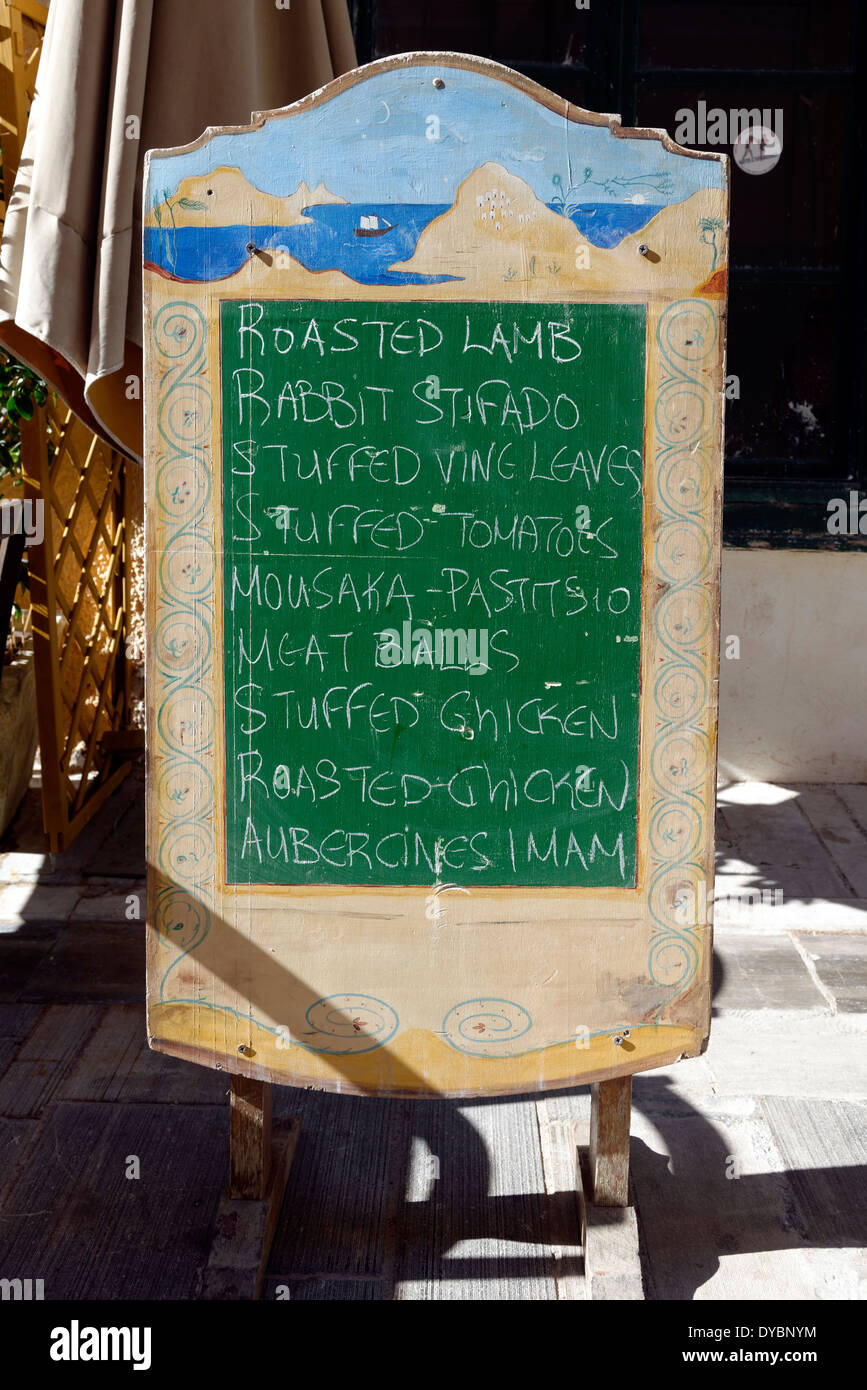 ROASTED LAMB
RABBIT STIFADO
STUFFED VINE LEAVES
STUFFED-TOMATOES
MOUSAKA-PASTITSIO
MEAT BALLS
STUFFED CHICKEN
ROASTED-CHICKEN
AUBERCINES IMAM
alamy
a
alamy
Image ID: DYBNYM
www.alamy.com